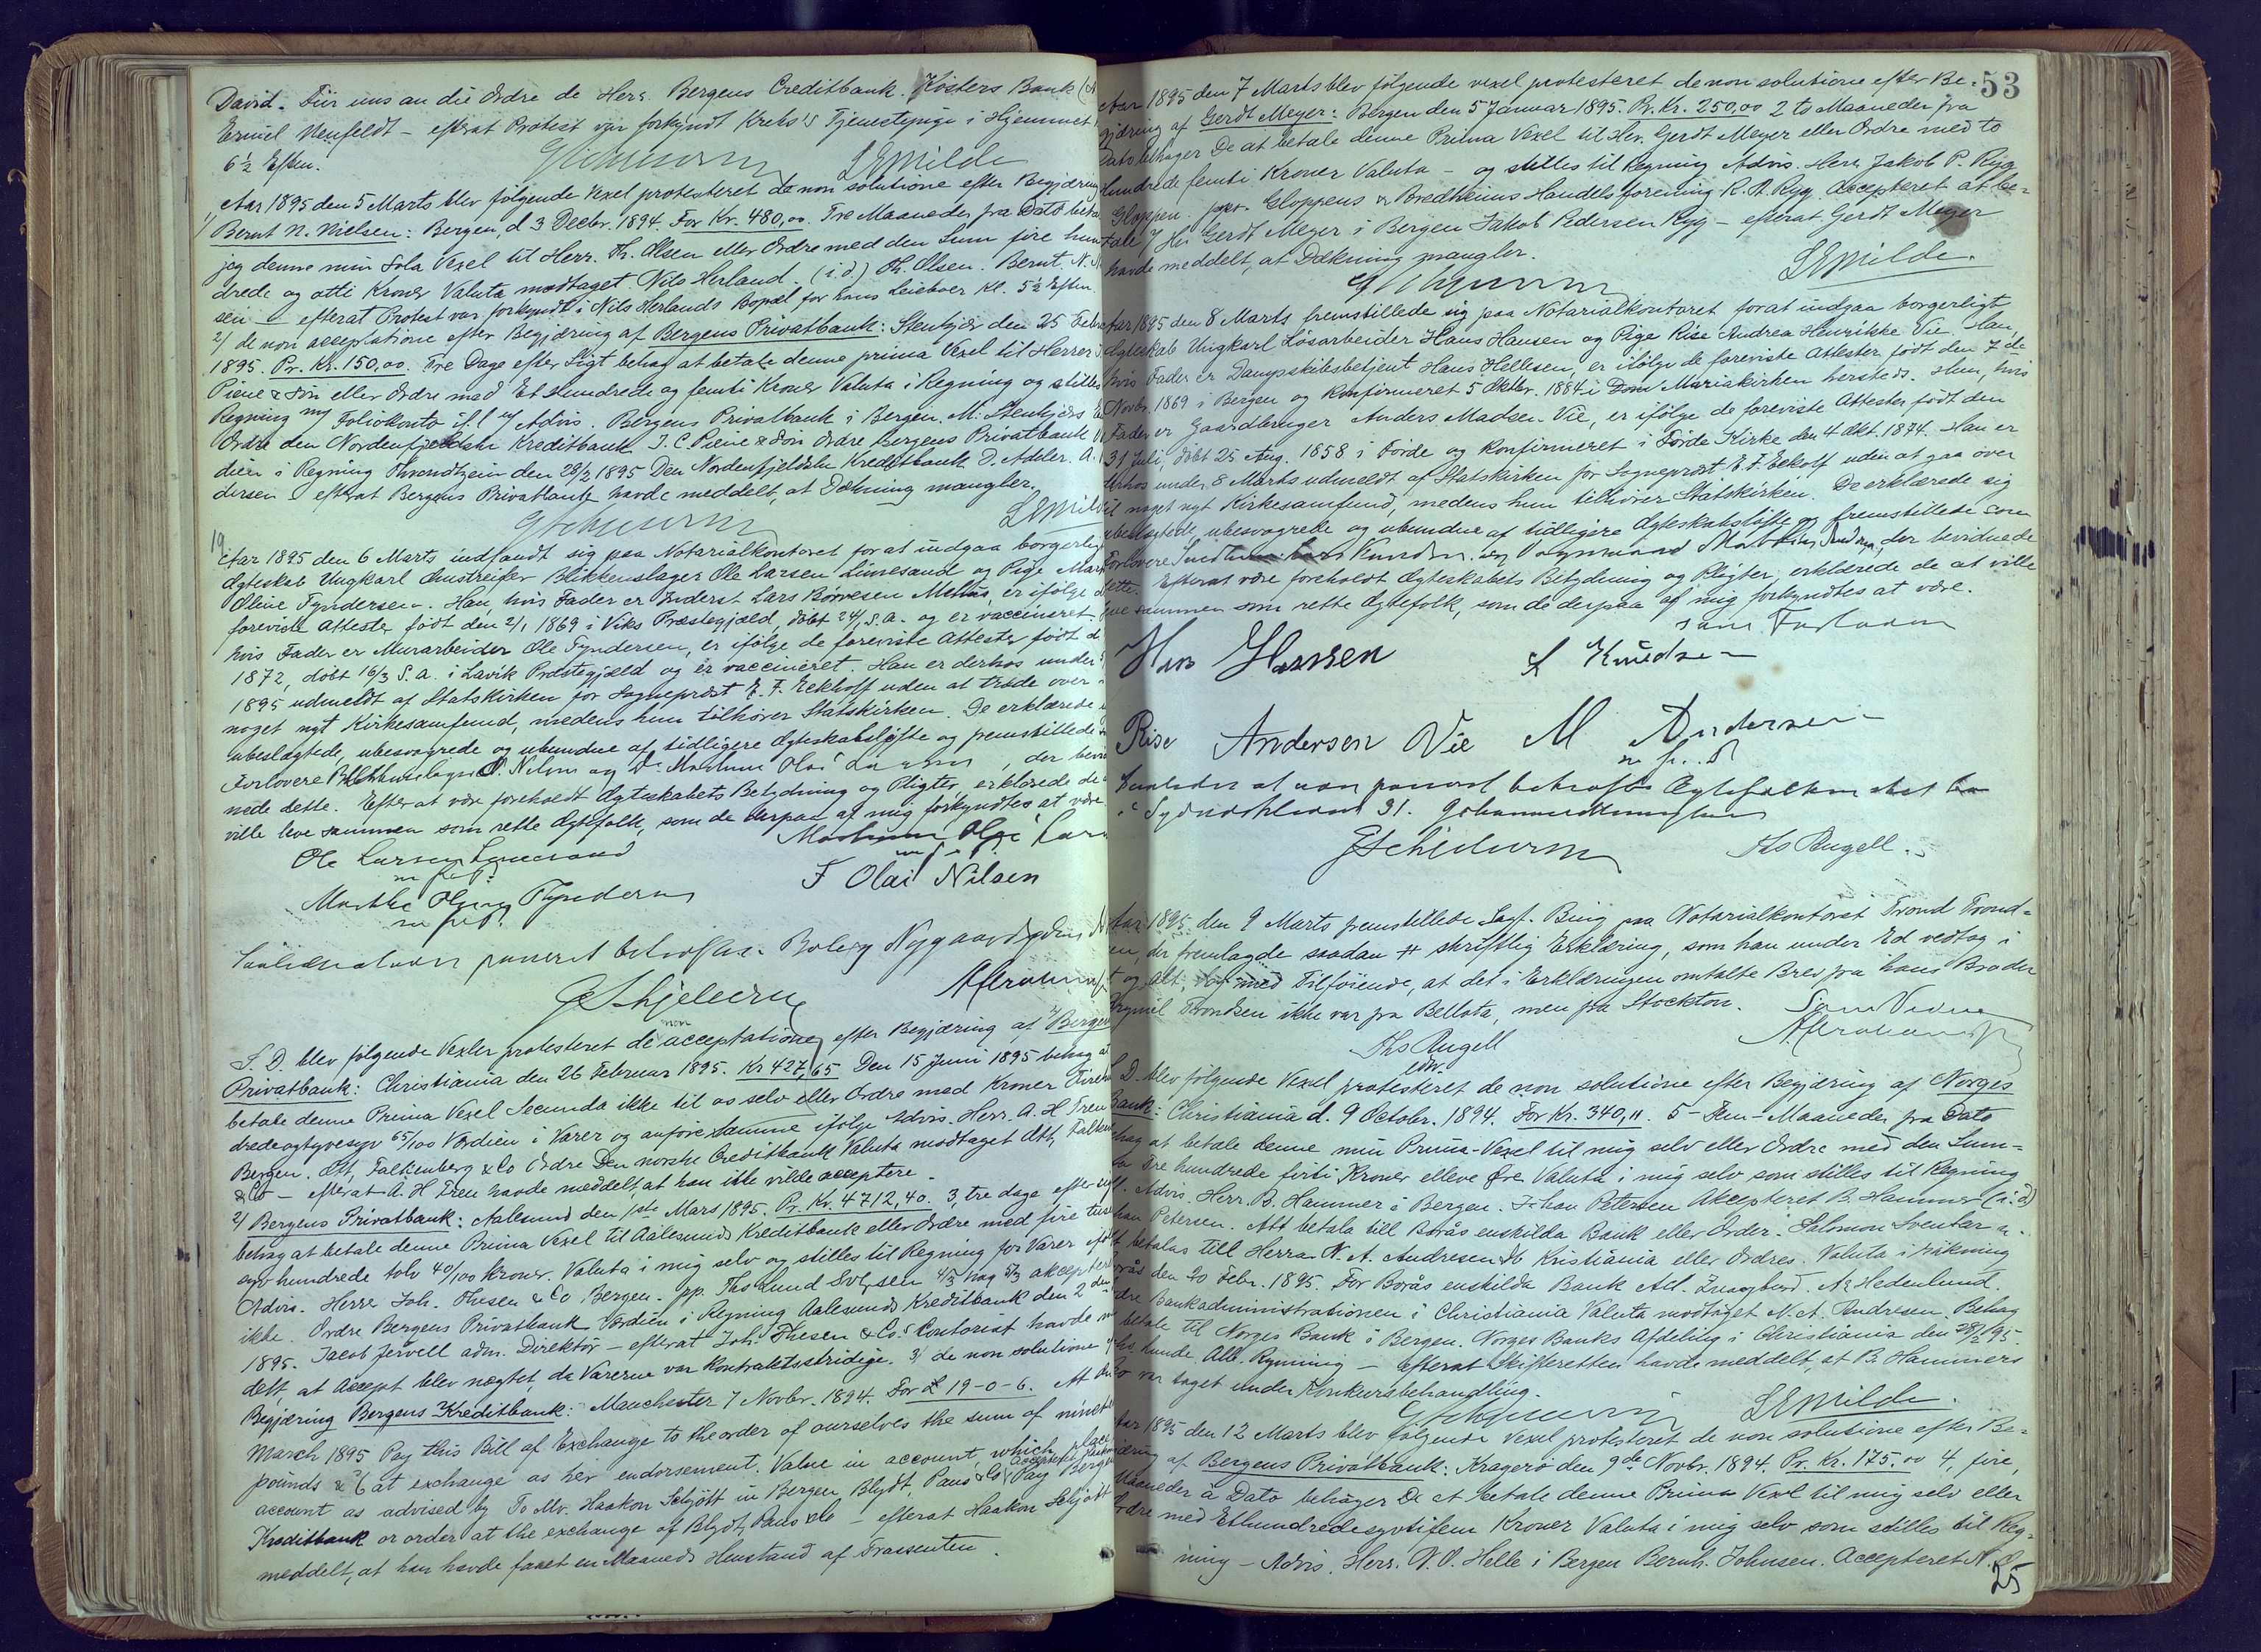 David. Für uns an die Ordre de Herr. Bergens Creditbank. Kösters Bank
Ermil Neufeldt - efterat Protest var forkyndt Krebs's Tjenestepige i Hjemmet
6½ Eften.
LEMilde
Aar 1895 den 5 Marts blev følgende Vexel protesteret de non solutione efter Begjæring
Bernt N. Nielsen: Bergen, d 3 Decbr. 1894. For Kr. 480,00. Tre Maaneder fra Dato betal
jeg denne min Sola Vexel til Herr. Th. Olsen eller Ordre med den Sum fire hun
drede og otti Kroner Valuta modtaget. Nils Herland. (i.d.) Th. Olsen. Bernt. N. N
sen - efterat Protest var forkyndt i Nils Herlands Bopæl for hans Leieboer Kl. 5½ Eften.
2) de non acceptatione efter Begjæring af Bergens Privatbank: Stenkjær den 25 Febr
1895. Pr. Kr. 150,00. Tre Dage efter Sigt behag at betale denne prima Vexel til Herrer
Piene & Søn eller Ordre med Et Hundrede og femti Kroner Valuta i Regning og stilles
Regning my Foliokonto if.l Advis. Bergens Privatbank i Bergen. M. Stenkjærs
Ordre den Nordenfjeldske Kreditbank I. C. Piene & Søn Ordre Bergens Privatbank
dien i Regning Throndhjem den 28/2 1895 Den Nordenfjeldske Kreditbank D. Adder. A.
dersen - efterat Bergens Privatbank havde meddelt, at Dækning mangler.
LEMilde
19
Aar 1895 den 6 Marts indfandt sig paa Notarialkontoret for at indgaa borgerligt
Ægteskab Ungkarl Omstreifer Blikkenslager Ole Larsen Linesand og Pige Mart
Oline Tyndersen. Han, hvis Fader er Inderst Lars Larsen er ifølge
foreviste Attester født den 2/1 1869 i Viks Præstegjæld, døbt 24/1 s.a. og er vaccineret.
hvis Fader er Murarbeider Ole Tyndersen, er ifølge de foreviste Attester født d
1872, døbt 16/3 S. a. i Lavik Præstegjæld og er vaccineret. Han er derhos under
1895 udmeldt af Statskirken for Sogneprest E. F. Eckhoff uden at træde over
noget nyt Kirkesamfund, medens hun tilhører Statskirken. De erklærede
ubeslægtede, ubesvogrede og ubundne af tidligere Ægteskabsløfte og fremstillede
Forlovere Blikkenslager O. Nilsen og Do Olai Larsen, der bevid
nede dette. Efter at være foreholdt Ægteskabets Betydning og Pligter, erklærede de
ville leve sammen som rette Ægtefolk, som de derpaa af mig forkyndtes at være
Ole Larsen Linesand
m. f. P.
Olai Lars
m. f. P.
Marthe Oline Tyndersen
m. f. P.
F Olai Nilsen
passeret bekræftes. Nygaards
S. D. blev følgende Vexler protesteret de non acceptatione, efter Begjæring af 1) Bergens
Privatbank: Christiania den 26 Februar 1895. Kr 427,65 Den 15 Juni 1895 behag at
betale denne Prima Vexel Secunda ikke til os selv eller Ordre med Kroner Firehun
dredeogtyvesyv 65/100 Værdien i Varer og anføre samme ifølge Advis. Herr. A. H. Freu
Bergen. Ott, Falkenberg & Co Ordre Den norske Creditbank Valuta modtaget Ott, Falken
& Co - efterat A. H Freu havde meddelt, at han ikke vilde acceptere.
2) Bergens Privatbank: Aalesund den 1ste Mars 1895. Pr. Kr. 4712,40. 3, tre dage efter
behag at betale denne Prima Vexel til Aalesunds Kreditbank eller Ordre med fire tusen
syv hundrede tolv 40/100 Kroner. Valuta i mig selv og stilles til Regning for Varer
Advis. Herrer Joh. Thesen & Co Bergen. pp. Tho Lund 4/3 nag 5/3 aksept
ikke. Ordre Bergens Privatbank Værdien i Regning Aalesunds Kreditbank den 2den
1895. Jacob Jervell adm. Direktør - efterat Joh. Thesen & Co.s Contorist havde
delt, at Accept blev nægtet, da Varerne var Kontraktsstridige. 3) de non solutione
Begjæring Bergens Kreditbank: Manchester 7 Novbr. 1894. For £ 19-0-6. At
March 1895 Pay this Bill of Exchange to the order of ourselves the sum of ninet
pounds & /6 at exchange as her endorsement. Value in account which place
account as advised by To Mr. Haakon Schjött in Bergen Blydt, Paus & Co Accepted Haakon Pay Bergen
Kreditbank or order at the exchange of Blydt, Paus & Co - efterat Haakon Schjött
meddelt, at han havde faaet en Maaneds Henstand af Trassenten.
53
Aar 1895 den 7 Marts blev følgende vexel protesteret de non solutione efter Be-
gjæring af Gerdt Meyer: Bergen den 5 Januar 1895. Pr. Kr. 250,00 2 to Maaneder fra
Dato behager De at betale denne Prima Vexel til Hr. Gerdt Meyer eller Ordre med to
Hundrede femti Kroner Valuta - og stilles til Regning Advis. Herr Jakob P. Rygg
Gloppen. Gloppens & Bredheims Handelsforening R. A. Ryg. Accepteret at be-
tale Hr Gerdt Meyer i Bergen Jakob Pedersen Ryg - efterat Gerdt Meyer
havde meddelt, at Dækning mangler.
LEMilde.
Aar 1895 den 8 Marts fremstillede sig paa Notarialkontoret forat indgaa borgerligt
Ægteskab Ungkarl Løsarbeider Hans Hansen og Pige Rise Andrea Henrikke Vie. Han,
hvis Fader er Dampskibsbetjent Hans Hellesen, er ifølge de foreviste Attester født den 7de
Novbr. 1869 i Bergen og Konfirmeret 5 Oktbr. 1884 i Dom Mariakirken hersteds. Hun, hvis
Fader er Gaardbruger Anders Madsen Vie, er ifølge de foreviste Attester født den
31 Juli, døbt 25 Aug. 1858 i Førde og konfirmeret i Førde Kirke den 4 Okt. 1874. Han er
derhos under 8 Marts udmeldt af Statskirken for Sogneprest E. F. Eckhoff uden at gaa over
til noget nyt Kirkesamfund, medens hun tilhører Statskirken. De erklærede sig
ubeslægtede ubesvogrede og ubundne af tidligere Ægteskabsløfte og fremstillede som
Forlovere Knudsen og Andersen, der bevidnede
dette. Efterat være foreholdt Ægteskabets Betydning og Pligter, erklærede de at ville
leve sammen som rette Ægtefolk, som de derpaa af mig forkyndtes at være.
som Forlovere
Hans Hansen
A Knudsen
Rise Andersen Vie
M Andersen
m. f. P.
passeret bekræftes Ægtefolkene
i 31.
Ths Angell.
Aar 1895 den 9 Marts fremstillede Sagf. Bing paa Notarialkontoret Trond Trond-
sen, der fremlagde saadan # skriftlig Erklæring, som han under Ed vedtog i
Et og alt, dog med Tilføiende, at det i Erklæringen omtalte Brev fra hans Broder
Brynjel Trondsen ikke var fra Bellota, men fra Stockton.
Som Vidne
Ths Angell
edv.
S. D. blev følgende Vexel protesteret de non solutione efter Begjæring af Norges
Bank: Christiania d. 9 Octobr. 1894. For Kr. 340,11. 5 - Fem - Maaneder fra Dato
behag at betale denne min Prima-Vexel til mig selv eller Ordre med den Sum-
ma Tre hundrede firti Kroner elleve Øre Valuta i mig selv som stilles til Regning
ifl. Advis. Herr. B. Hammer i Bergen. Johan Petersen Akcepteret B. Hammer (i:d)
Johan Petersen. Att betala till Borås enskilda Bank eller Order. Salomon Svenhar
Att betalas till Herra N. A. Andresen & Co Kristiania eller Ordres. Valuta i räkning
Borås den 20 Febr. 1895. For Borås enskilda Bank Ad. Zvaagberd. A. Hedenlund.
Ordre Bankadministrationen i Christiania Valuta modtaget N. A. Andresen. Behag
betale til Norges Bank i Bergen. Norges Banks Afdeling i Christiania den 28/2 95.
hunde Alb. Rynning - efterat Skifteretten havde meddelt, at B. Hammers
Bo var taget under Konkursbehandling.
LEMilde.
Aar 1895 den 12 Marts blev følgende Vexel protesteret de non solutione efter Be-
gjæring af Bergens Privatbank: Kragerø den 9de Novbr. 1894. Pr. Kr. 175,00 4, fire,
Maaneder à Dato behager De at betale denne Prima Vexel til mig selv eller
Ordre med Ethundredesyvtifem Kroner Valuta i mig selv som stilles til Reg-
ning - Advis. Herr. N. O. Helle i Bergen Bernh. Johnsen. Accepteret N. O
25